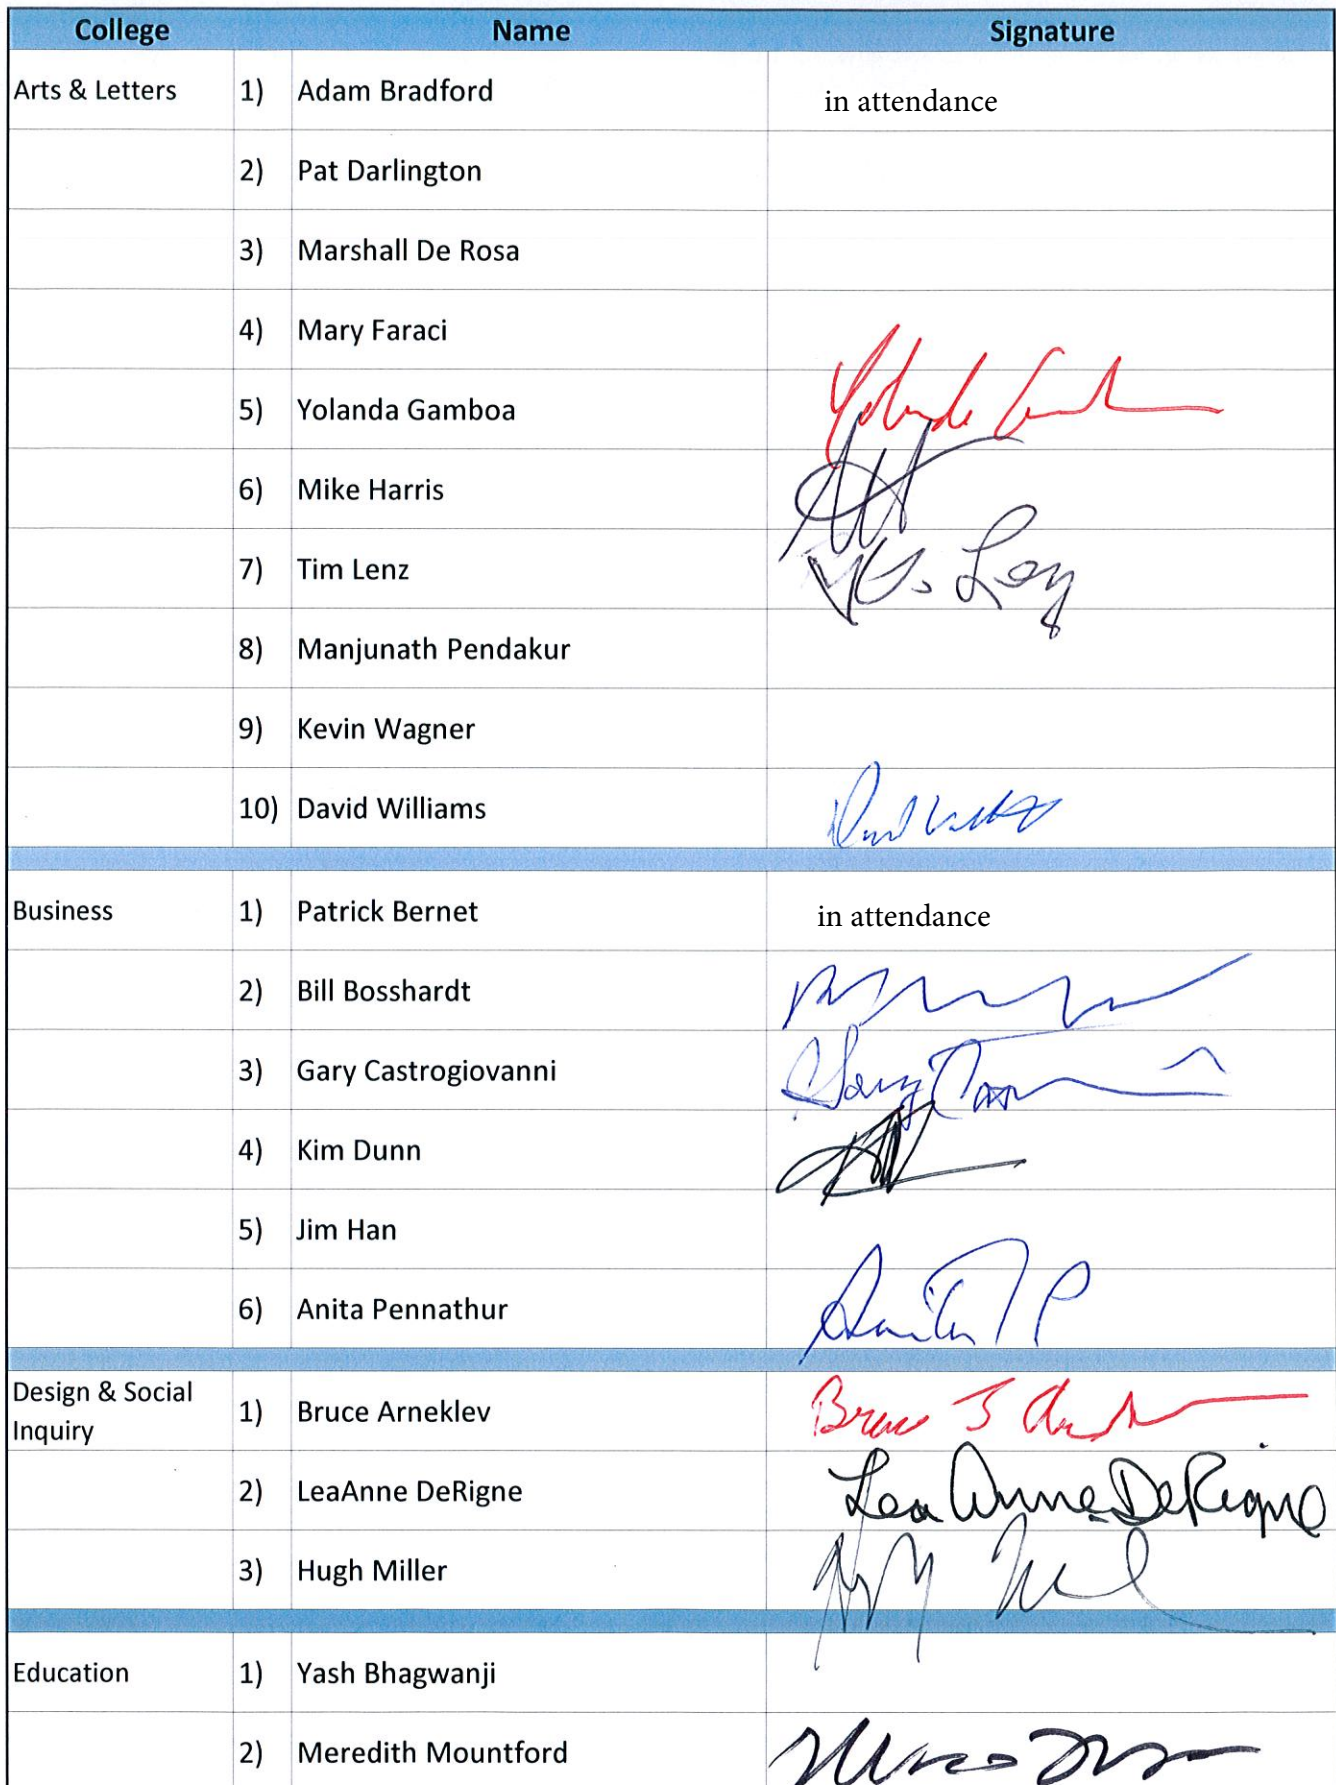 College Name Signature
Arts & Letters 1) Adam Bradford in attendance
2) Pat Darlington
3) Marshall De Rosa
4) Mary Faraci
5) Yolanda Gamboa Yolanda
6) Mike Harris
7) Tim Lenz Lenz
8) Manjunath Pendakur
9) Kevin Wagner
10) David Williams David
Business 1) Patrick Bernet in attendance
2) Bill Bosshardt
3) Gary Castrogiovanni Gary
4) Kim Dunn
5) Jim Han
6) Anita Pennathur Anita P
Design & Social
Inquiry
1) Bruce Arneklev Bruce J
2) LeaAnne DeRigne LeaAnne DeRigne
3) Hugh Miller
Education 1) Yash Bhagwanji
2) Meredith Mountford